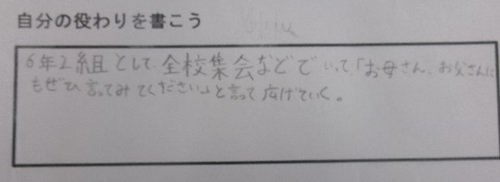 自分の役わりを書こう
6年2組として、全校集会などでいって、「お母さん、お父さんに
もぜひ言ってみてください」と言って広げていく。